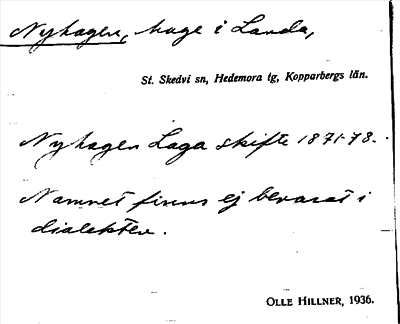 Nyhagen, hage i Landa,
St. Skedvi sn, Hedemora tg, Kopparbergs län.
Nyhagen Laga skifte 1871-78.
Namnet finns ej bevarat i
dialekten.
OLLE HILLNER, 1936.